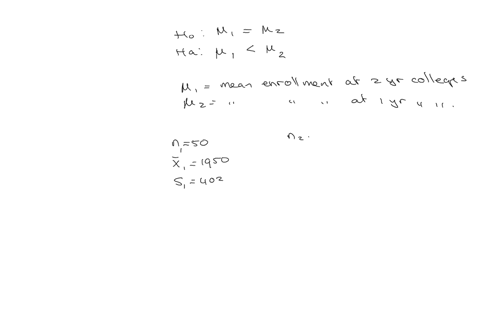 H₀: μ₁ = μ₂
Ha: μ₁ < μ₂
μ₁ = mean enrollment at 2 yr colleges
μ₂ = " " " at 1 yr " ".
n₁=50 n₂.
x̄₁=1950
S₁=402